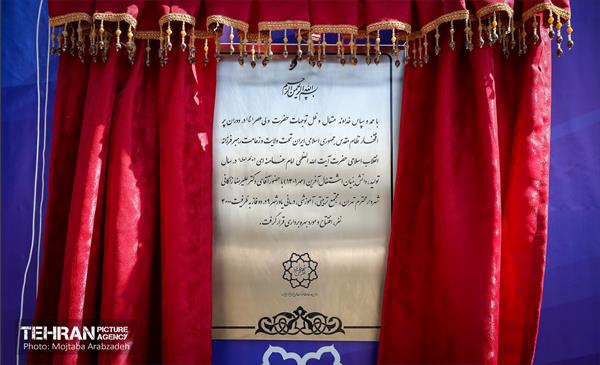 بسم الله الرحمن الرحیم
با حمد و سپاس خداوند متعال و ظل توجهات حضرت ولی عصر (عج) در دوران پر
افتخار نظام مقدس جمهوری اسلامی ایران تحت ولایت و زعامت رهبر فرزانه
انقلاب اسلامی حضرت آیت الله العظمی امام خامنه ای در سال
تولید، دانش بنیان، اشتغال آفرین (مهر ۱۴۰۱) با حضور آقای دکتر علیرضا زاکانی
شهردار محترم تهران، مجتمع تربیتی، آموزشی، درمانی یاورشهر ۹ در دو فاز به ظرفیت ۲۰۰۰
نفر، افتتاح و مورد بهره برداری قرار گرفت.
TEHRAN PICTURE AGENCY
Photo: Mojtaba Arabzadeh